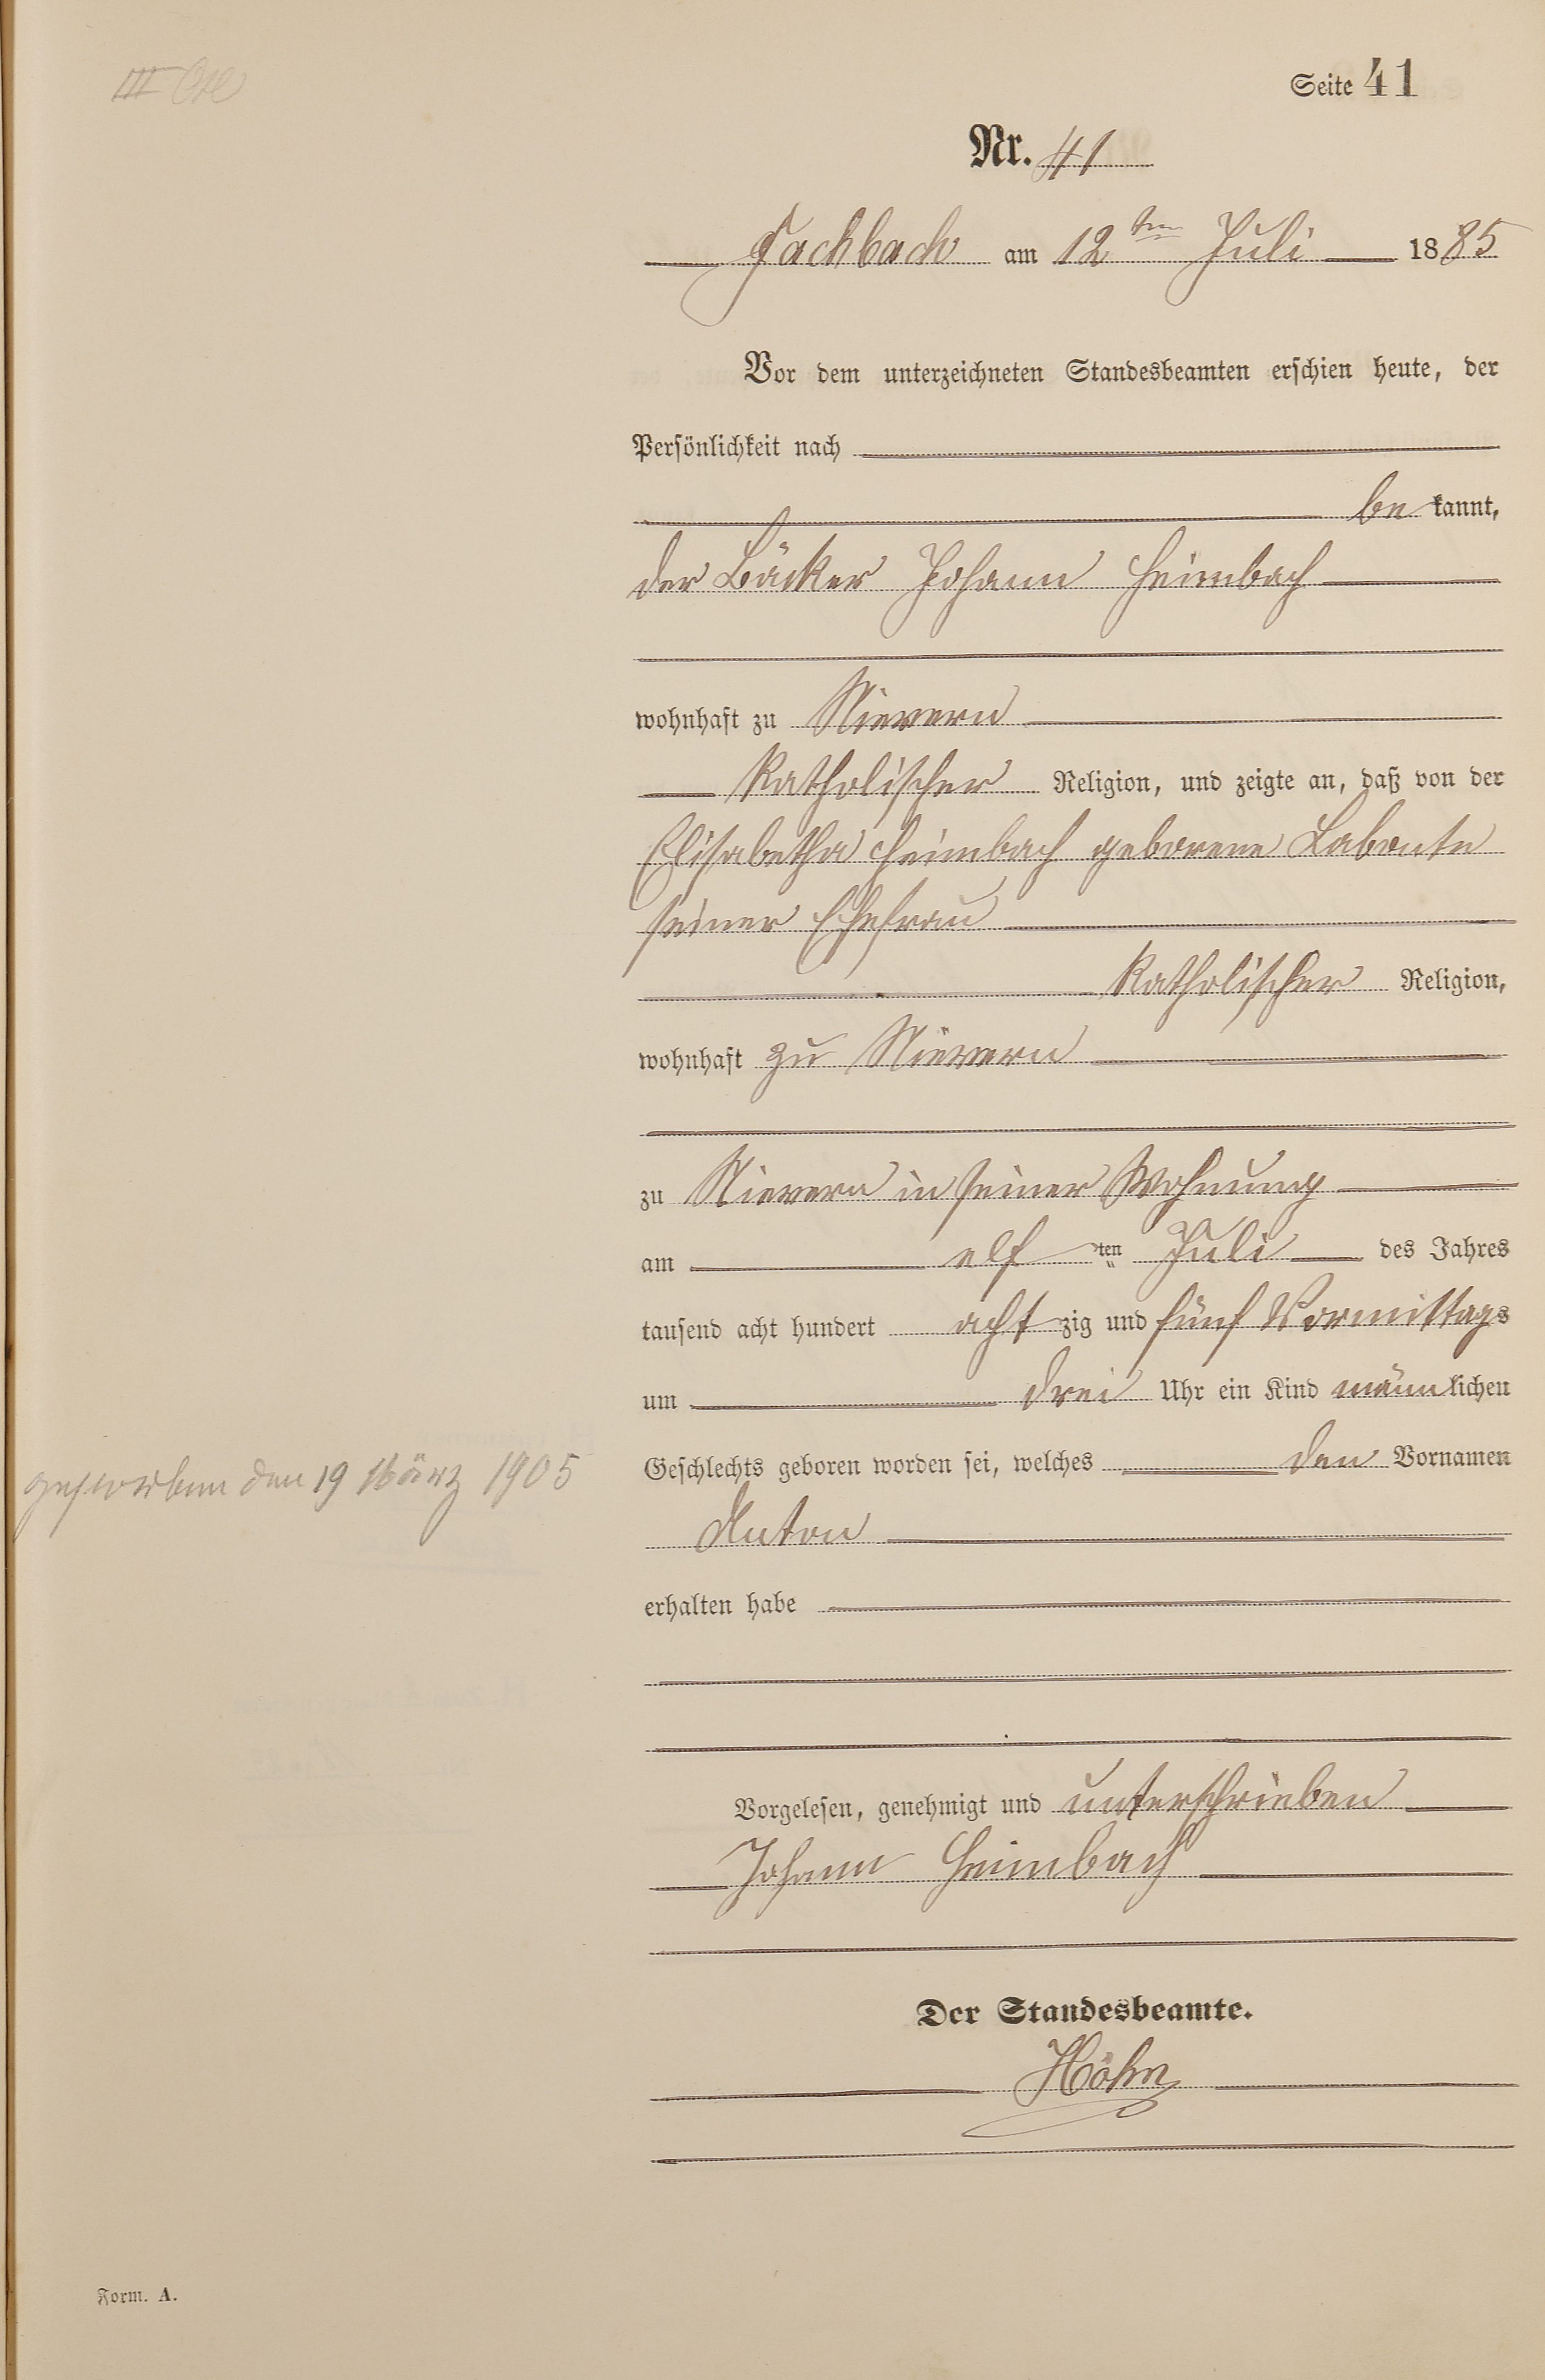 Seite 41
Nr. 41
Fachbach am 12ten Juli 1885
Vor dem unterzeichneten Standesbeamten erschien heute, der
Persönlichkeit nach
be kannt,
der Bäcker Johann Heimbach
wohnhaft zu Nievern
Katholischer Religion, und zeigte an, daß von der
Elisabetha Heimbach geborene Labonte
seiner Ehefrau
Katholischer Religion,
wohnhaft zu Nievern
zu Nievern in seiner Wohnung
am elf ten Juli des Jahres
tausend acht hundert acht zig und fünf Vormittags
um drei Uhr ein Kind männlichen
Geschlechts geboren worden sei, welches den Vornamen
gestorben den 19 März 1905
Anton
erhalten habe
Vorgelesen, genehmigt und unterschrieben
Johann Heimbach
Der Standesbeamte.
Höhn
Form. A.